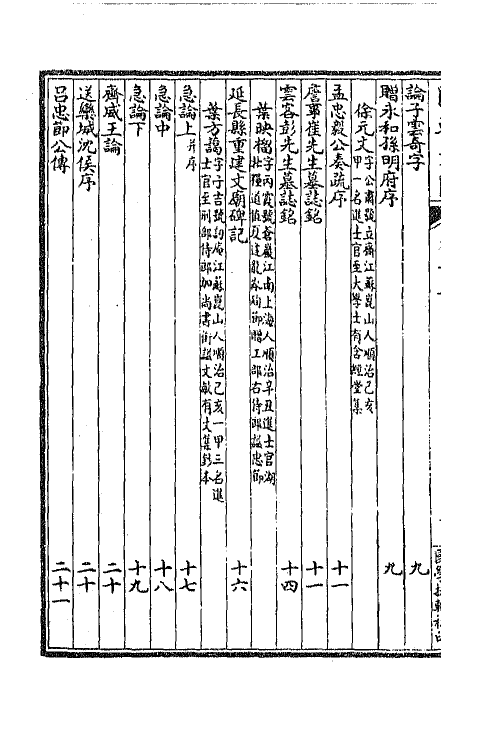 論子雲奇字　九
贈永和孫明府序　九
徐元文字公肅號立齋江蘇崑山人順治己亥
甲一名進士官至大學士有含經堂集
孟忠毅公奏疏序　十一
詹事崔先生墓誌銘　十一
雲客彭先生墓誌銘　十四
葉映榴字丙霞號蒼巖江南上海人順治辛丑進士官湖
北糧道值夏逢龍殉節贈工部右侍郎諡忠節
延長縣重建文廟碑記　十六
葉方藹字子吉號訒庵江蘇崑山人順治己亥一甲三名進
士官至刑部侍郎加尚書銜諡文敏有文集鈔本
急論上并序　十七
急論中　十八
急論下　十九
齊威王論　二十
送欒城沈侯序　二十
呂忠節公傳　二十一